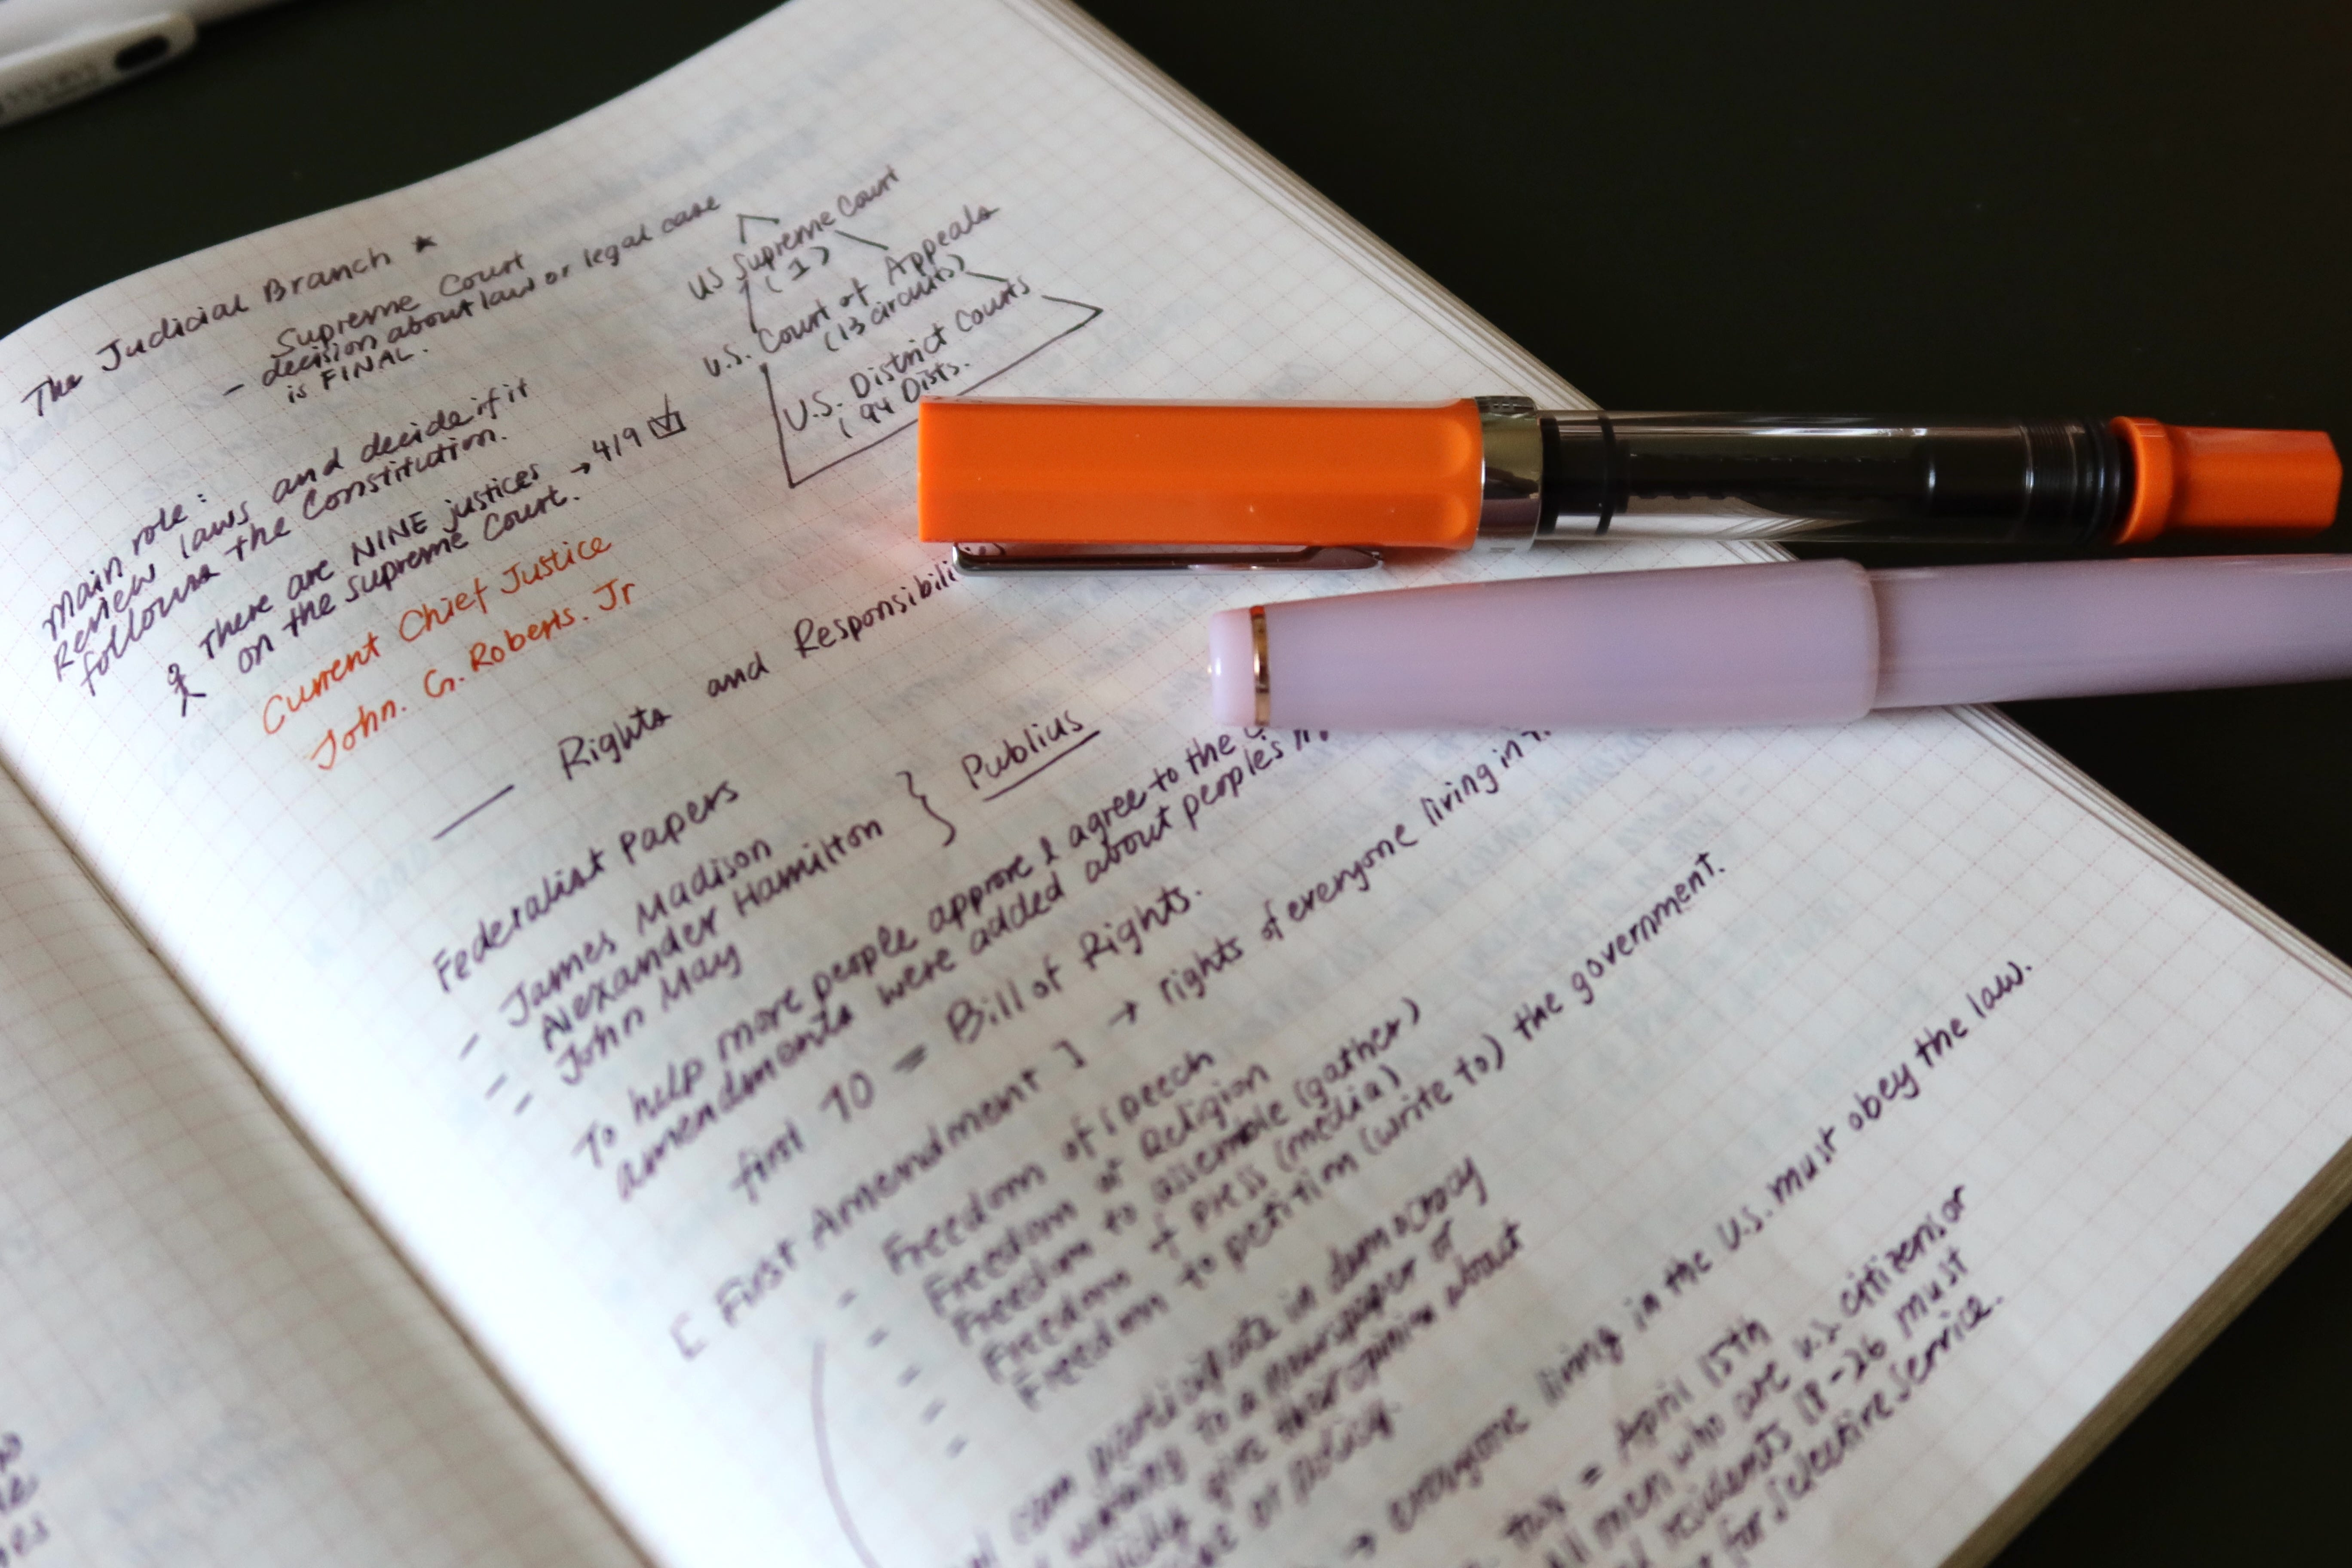 The Judicial Branch ★
Supreme Court
- decision about law or legal case
is FINAL.
US Supreme Court
(1)
U.S. Court of Appeals
(13 circuits)
U.S. District Courts
(94 Dists.
Main role:
Review laws and decide if it
follows the Constitution.
There are NINE justices → 4/9
on the supreme Court.
Current Chief Justice
John. G. Roberts. Jr
Rights and Responsibili
Federalist Papers
- James Madison
- Alexander Hamilton } Publius
- John May
To help more people approve & agree to the
amendments were added about peoples
first 10 = Bill of Rights.
[ First Amendment ] → rights of everyone living in
- Freedom of speech
- Freedom of Religion
- Freedom to assemble (gather)
- Freedom of press (media)
- Freedom to petition (write to) the government.
can participate in democracy
to a newspaper or
give their opinion about
or policy.
→ everyone living in the U.S. must obey the law.
tax = April 15th
men who are U.S. citizens or
residents 18-26 must
for selective service.